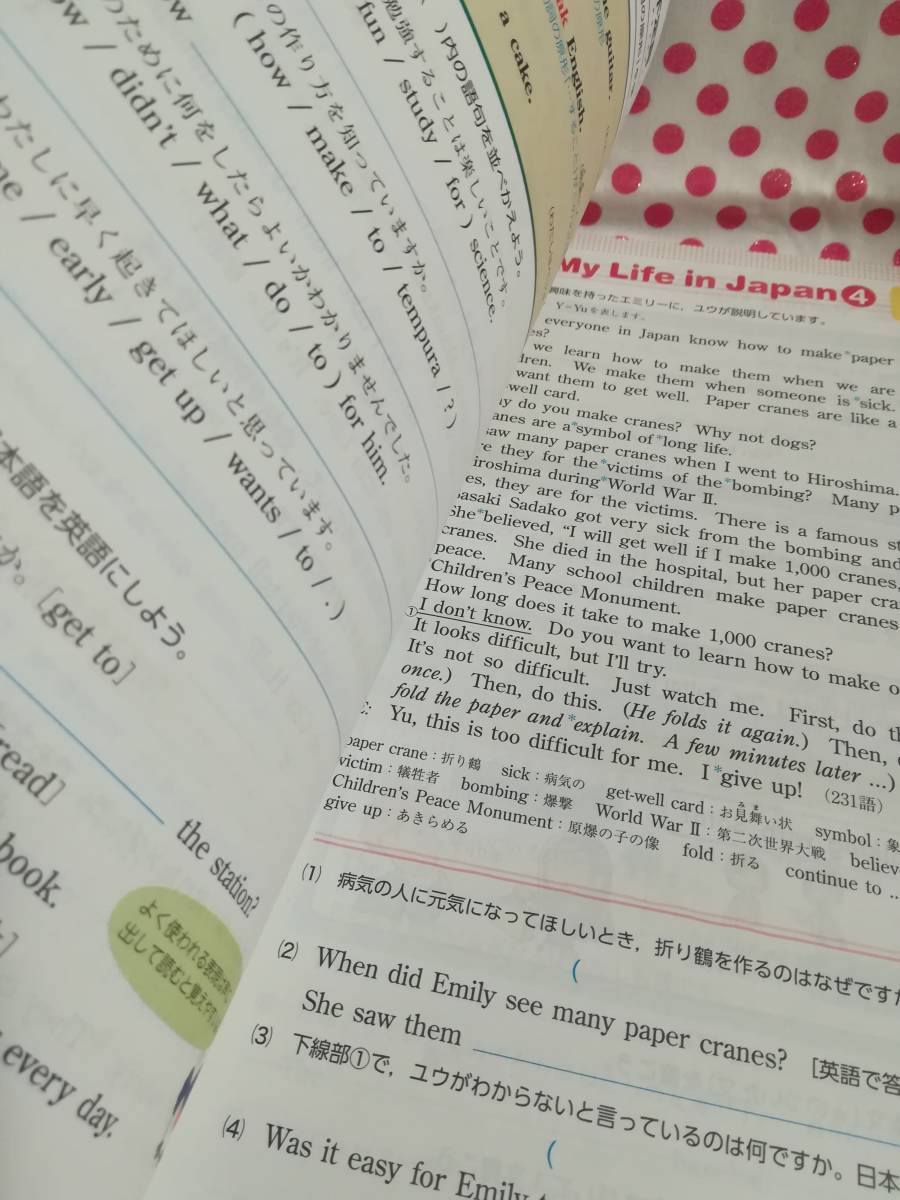 the guitar.
English.
a cake.
)内の語句を並べかえよう。
勉強することは楽しいことです。
fun / study / for ) science.
の作り方を知っていますか。
( how / make / to / tempura / ? )
のために何をしたらよいかわかりませんでした。
/ didn't / what / do / to ) for him.
わたしに早く起きてほしいと思っています。
/ early / get up / wants / to / . )
本語を英語にしよう。
か。[get to]
the station?
read]
book.
よく使われる表現
出して読むと覚え
every day.
My Life in Japan 4
興味を持ったエミリーに，ユウが説明しています。
Y=Yuを表します。
everyone in Japan know how to make *paper
we learn how to make them when we are
We make them when someone is *sick.
want them to get well. Paper cranes are like a
well card.
do you make cranes? Why not dogs?
are a *symbol of *long life.
saw many paper cranes when I went to Hiroshima.
they for the *victims of the *bombing? Many
Hiroshima during *World War Ⅱ.
they are for the victims. There is a famous
Sasaki Sadako got very sick from the bombing and
She *believed, “I will get well if I make 1,000 cranes,
cranes. She died in the hospital, but her paper
peace. Many school children make paper cranes
*Children's Peace Monument.
How long does it take to make 1,000 cranes?
①I don't know. Do you want to learn how to make
It looks difficult, but I'll try.
It's not so difficult. Just watch me. First, do
once.) Then, do this. (He folds it again.) Then,
fold the paper and *explain. A few minutes later …)
Yu, this is too difficult for me. I *give up! (231語)
paper crane：折り鶴 sick：病気の get-well card：お見舞い状 symbol：象
victim：犠牲者 bombing：爆撃 World War Ⅱ：第二次世界大戦
Children's Peace Monument：原爆の子の像 fold：折る continue to …
give up：あきらめる
(1) 病気の人に元気になってほしいとき，折り鶴を作るのはなぜですか
(
(2) When did Emily see many paper cranes? [英語で答
She saw them
(3) 下線部①で，ユウがわからないと言っているのは何ですか。日本
(
(4) Was it easy for Emily